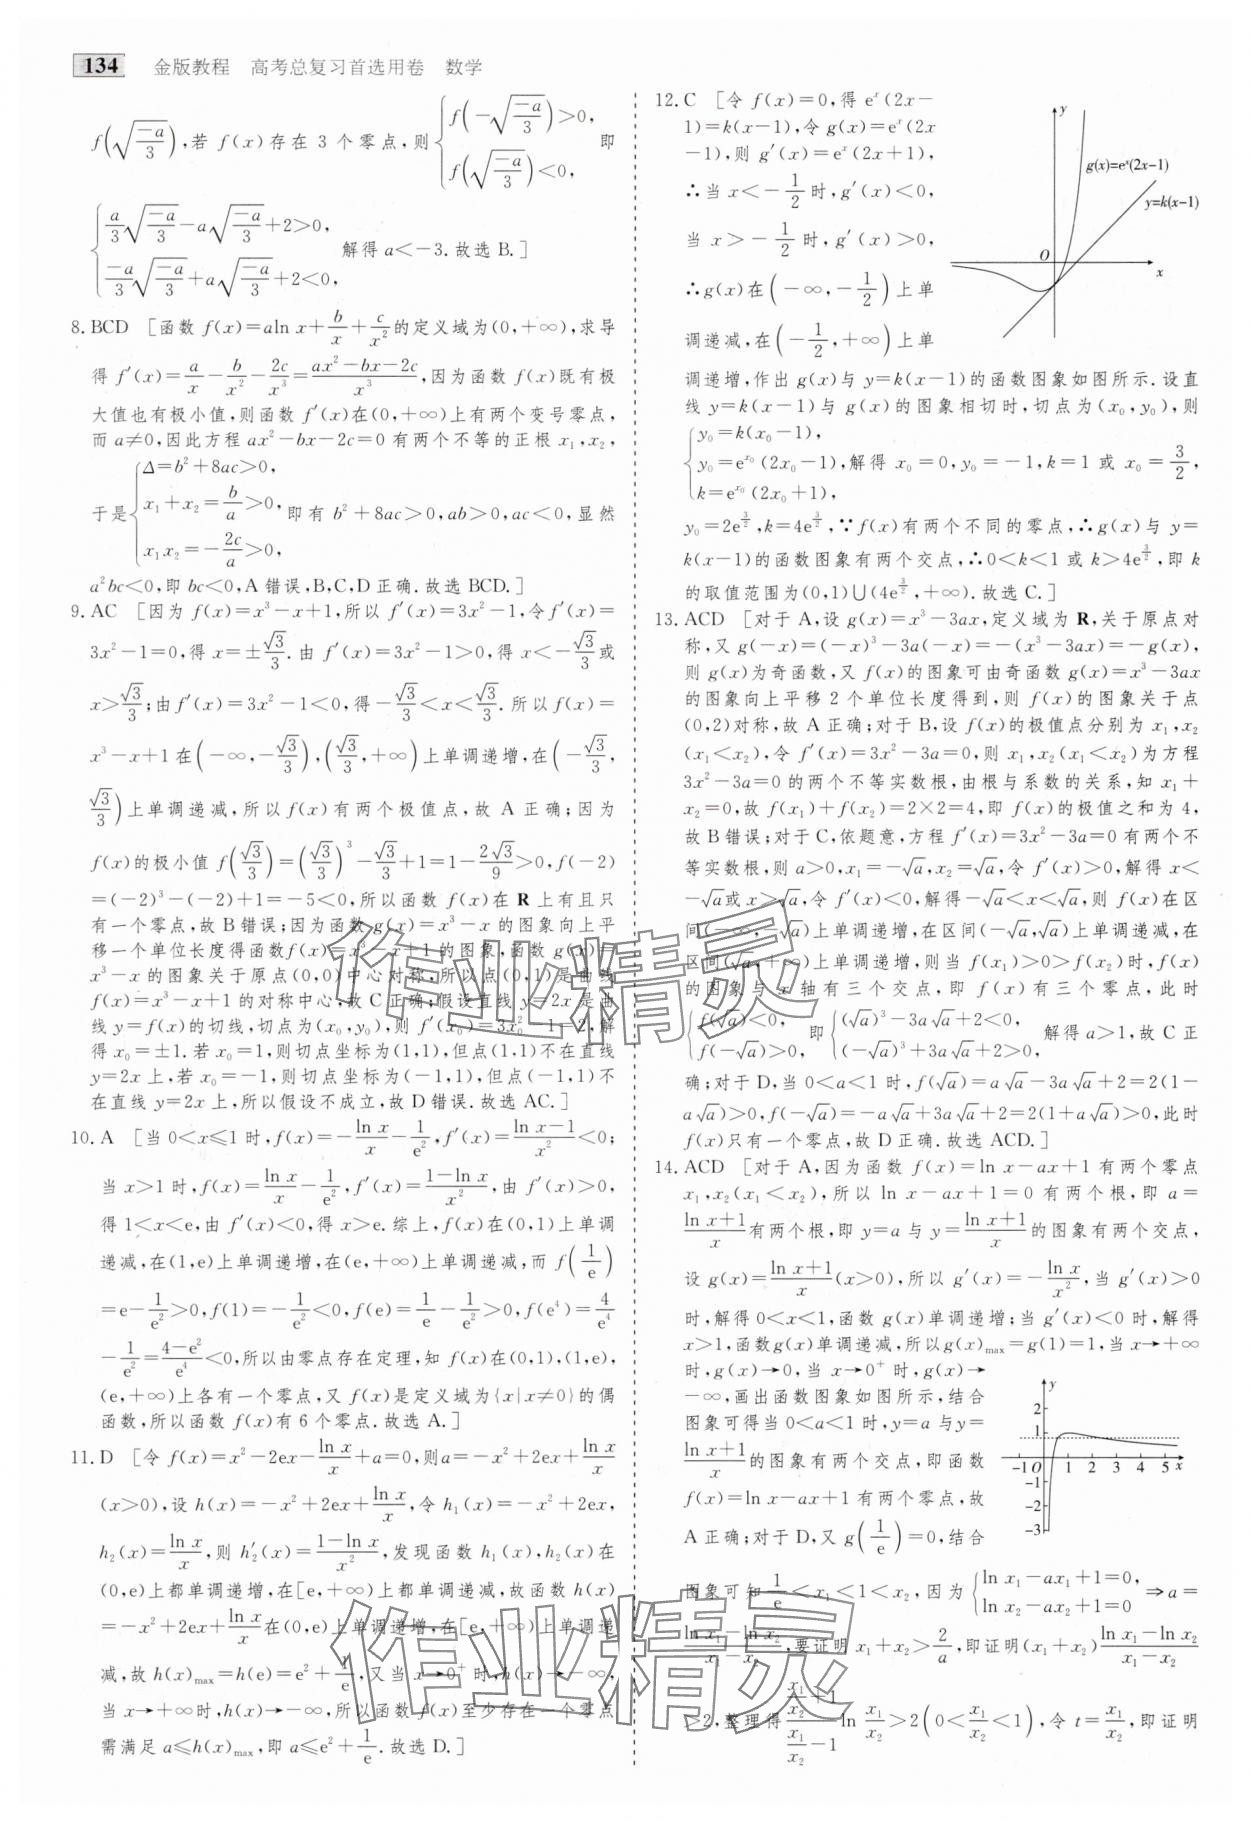 134 金版教程 高考总复习首选用卷 数学
f(√(-a/3)),若 f(x)存在 3 个零点,则{f(-√(-a/3))>0, f(√(-a/3))<0, 即
{a/3 √(-a/3)-a√(-a/3)+2>0, -a/3 √(-a/3)+a√(-a/3)+2<0, 解得 a<-3.故选 B.]
8. BCD [函数 f(x)=aln x+b/x+c/x²的定义域为(0,+∞),求导
得 f′(x)=a/x-b/x²-2c/x³=(ax²-bx-2c)/x³,因为函数 f(x)既有极
大值也有极小值,则函数 f′(x)在(0,+∞)上有两个变号零点,
而 a≠0,因此方程 ax²-bx-2c=0 有两个不等的正根 x₁,x₂,
于是{Δ=b²+8ac>0, x₁+x₂=b/a>0, x₁x₂=-2c/a>0, 即有 b²+8ac>0,ab>0,ac<0,显然
a²bc<0,即 bc<0,A 错误,B,C,D 正确.故选 BCD.]
9. AC [因为 f(x)=x³-x+1,所以 f′(x)=3x²-1,令f′(x)=
3x²-1=0,得 x=±√3/3.由 f′(x)=3x²-1>0,得 x<-√3/3或
x>√3/3;由f′(x)=3x²-1<0,得-√3/3<x<√3/3.所以 f(x)=
x³-x+1 在(-∞,-√3/3),(√3/3,+∞)上单调递增,在(-√3/3,
√3/3)上单调递减,所以 f(x)有两个极值点,故 A 正确;因为
f(x)的极小值 f(√3/3)=(√3/3)³-√3/3+1=1-2√3/9>0,f(-2)
=(-2)³-(-2)+1=-5<0,所以函数 f(x)在 R 上有且只
有一个零点,故 B错误;因为函数 g(x)=x³-x 的图象向上平
移一个单位长度得函数f(x)=x³-x+1 的图象,函数 g(x)=
x³-x 的图象关于原点(0,0)中心对称,所以点(0,1)是曲线
f(x)=x³-x+1 的对称中心,故 C正确;假设直线 y=2x 是曲
线 y=f(x)的切线,切点为(x₀,y₀),则 f′(x₀)=3x₀²-1=2,解
得 x₀=±1.若 x₀=1,则切点坐标为(1,1),但点(1,1)不在直线
y=2x 上,若 x₀=-1,则切点坐标为(-1,1),但点(-1,1)不
在直线 y=2x 上,所以假设不成立,故 D错误.故选 AC.]
10. A [当 0<x≤1 时,f(x)=-ln x/x-1/e²,f′(x)=(ln x-1)/x²<0;
当 x>1 时,f(x)=ln x/x-1/e²,f′(x)=(1-ln x)/x²,由 f′(x)>0,
得 1<x<e,由 f′(x)<0,得 x>e.综上,f(x)在(0,1)上单调
递减,在(1,e)上单调递增,在(e,+∞)上单调递减,而 f(1/e)
=e-1/e²>0,f(1)=-1/e²<0,f(e)=1/e-1/e²>0,f(e⁴)=4/e⁴
-1/e²=(4-e²)/e⁴<0,所以由零点存在定理,知 f(x)在(0,1),(1,e),
(e,+∞)上各有一个零点,又 f(x)是定义域为{x|x≠0}的偶
函数,所以函数 f(x)有 6 个零点.故选 A.]
11. D [令 f(x)=x²-2ex-ln x/x+a=0,则a=-x²+2ex+ln x/x
(x>0),设 h(x)=-x²+2ex+ln x/x,令 h₁(x)=-x²+2ex,
h₂(x)=ln x/x,则 h₂′(x)=(1-ln x)/x²,发现函数 h₁(x),h₂(x)在
(0,e)上都单调递增,在[e,+∞)上都单调递减,故函数 h(x)
=-x²+2ex+ln x/x在(0,e)上单调递增,在[e,+∞)上单调递
减,故 h(x)max=h(e)=e²+1/e,又当 x→0⁺时,h(x)→-∞,
当 x→+∞时,h(x)→-∞,所以函数 f(x)至少存在一个零点
需满足 a≤h(x)max,即 a≤e²+1/e.故选 D.]
12. C [令 f(x)=0,得 eˣ(2x-
1)=k(x-1),令 g(x)=eˣ(2x
-1),则 g′(x)=eˣ(2x+1),
∴当 x<-1/2时,g′(x)<0,
当 x>-1/2时,g′(x)>0,
∴g(x)在(-∞,-1/2)上单
调递减,在(-1/2,+∞)上单
y
g(x)=eˣ(2x-1)
y=k(x-1)
O
x
调递增,作出 g(x)与 y=k(x-1)的函数图象如图所示.设直
线 y=k(x-1)与 g(x)的图象相切时,切点为(x₀,y₀),则
{y₀=k(x₀-1), y₀=e^(x₀)(2x₀-1), k=e^(x₀)(2x₀+1), 解得 x₀=0,y₀=-1,k=1 或 x₀=3/2,
y₀=2e^(3/2),k=4e^(3/2),∵f(x)有两个不同的零点,∴g(x)与 y=
k(x-1)的函数图象有两个交点,∴0<k<1 或 k>4e^(3/2),即 k
的取值范围为(0,1)∪(4e^(3/2),+∞).故选 C.]
13. ACD [对于 A,设 g(x)=x³-3ax,定义域为 R,关于原点对
称,又 g(-x)=(-x)³-3a(-x)=-(x³-3ax)=-g(x),
则 g(x)为奇函数,又 f(x)的图象可由奇函数 g(x)=x³-3ax
的图象向上平移 2 个单位长度得到,则 f(x)的图象关于点
(0,2)对称,故 A 正确;对于 B,设 f(x)的极值点分别为 x₁,x₂
(x₁<x₂),令 f′(x)=3x²-3a=0,则 x₁,x₂(x₁<x₂)为方程
3x²-3a=0 的两个不等实数根,由根与系数的关系,知 x₁+
x₂=0,故 f(x₁)+f(x₂)=2×2=4,即 f(x)的极值之和为 4,
故 B错误;对于 C,依题意,方程 f′(x)=3x²-3a=0 有两个不
等实数根,则 a>0,x₁=-√a,x₂=√a,令 f′(x)>0,解得 x<
-√a或 x>√a,令 f′(x)<0,解得-√a<x<√a,则 f(x)在区
间(-∞,-√a)上单调递增,在区间(-√a,√a)上单调递减,在
区间(√a,+∞)上单调递增,则当 f(x₁)>0>f(x₂)时,f(x)
的图象与 x 轴有三个交点,即 f(x)有三个零点,此时
{f(√a)<0, f(-√a)>0, 即{(√a)³-3a√a+2<0, (-√a)³+3a√a+2>0, 解得 a>1,故 C 正
确;对于 D,当 0<a<1 时,f(√a)=a√a-3a√a+2=2(1-
a√a)>0,f(-√a)=-a√a+3a√a+2=2(1+a√a)>0,此时
f(x)只有一个零点,故 D正确.故选 ACD.]
14. ACD [对于 A,因为函数 f(x)=ln x-ax+1 有两个零点
x₁,x₂(x₁<x₂),所以 ln x-ax+1=0 有两个根,即 a=
(ln x+1)/x有两个根,即 y=a 与 y=(ln x+1)/x的图象有两个交点,
设 g(x)=(ln x+1)/x(x>0),所以 g′(x)=-ln x/x²,当 g′(x)>0
时,解得 0<x<1,函数 g(x)单调递增;当 g′(x)<0 时,解得
x>1,函数g(x)单调递减,所以g(x)max=g(1)=1,当 x→+∞
时,g(x)→0,当 x→0⁺时,g(x)→
-∞,画出函数图象如图所示,结合
图象可得当 0<a<1 时,y=a 与y=
(ln x+1)/x的图象有两个交点,即函数
f(x)=ln x-ax+1 有两个零点,故
A 正确;对于 D,又 g(1/e)=0,结合
y
2
1
-1 O 1 2 3 4 5 x
-1
-2
-3
图象可知1/e<x₁<1<x₂,因为{ln x₁-ax₁+1=0, ln x₂-ax₂+1=0 ⇒a=
(ln x₁-ln x₂)/(x₁-x₂),要证明 x₁+x₂>2/a,即证明(x₁+x₂)(ln x₁-ln x₂)/(x₁-x₂)
>2,整理得(x₁/x₂+1)/(x₁/x₂-1) ln x₁/x₂>2(0<x₁/x₂<1),令 t=x₁/x₂,即证明
作业精灵
作业精灵